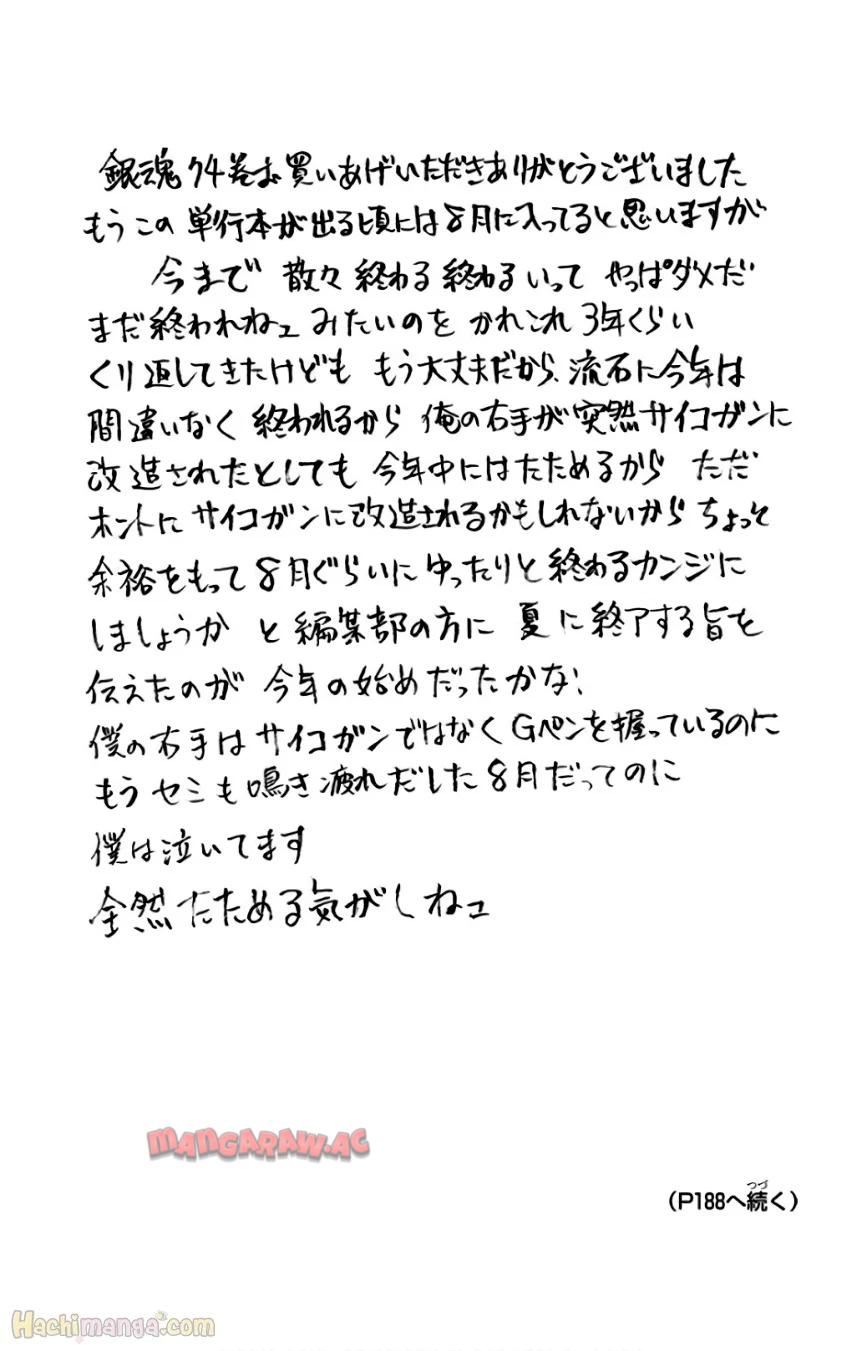 銀魂74巻お買いあげいただきありがとうございました
もうこの単行本が出る頃には8月に入ってると思いますが
今まで散々終わる終わるいってやっぱダメだ
まだ終われねェみたいのをかれこれ3年くらい
くり返してきたけどももう大丈夫だから、流石に今年は
間違いなく終われるから俺の右手が突然サイコガンに
改造されたとしても今年中にはたためるからただ
ホントにサイコガンに改造されるかもしれないからちょっと
余裕をもって8月ぐらいにゆったりと終わるカンジに
しましょうかと編集部の方に夏に終了する旨を
伝えたのが今年の始めだったかな、
僕の右手はサイコガンではなくGペンを握っているのに
もうセミも鳴き疲れだした8月だってのに
僕は泣いてます
全然たためる気がしねェ
MANGARAW.AC
(P188へ続く)
Hachimanga.com